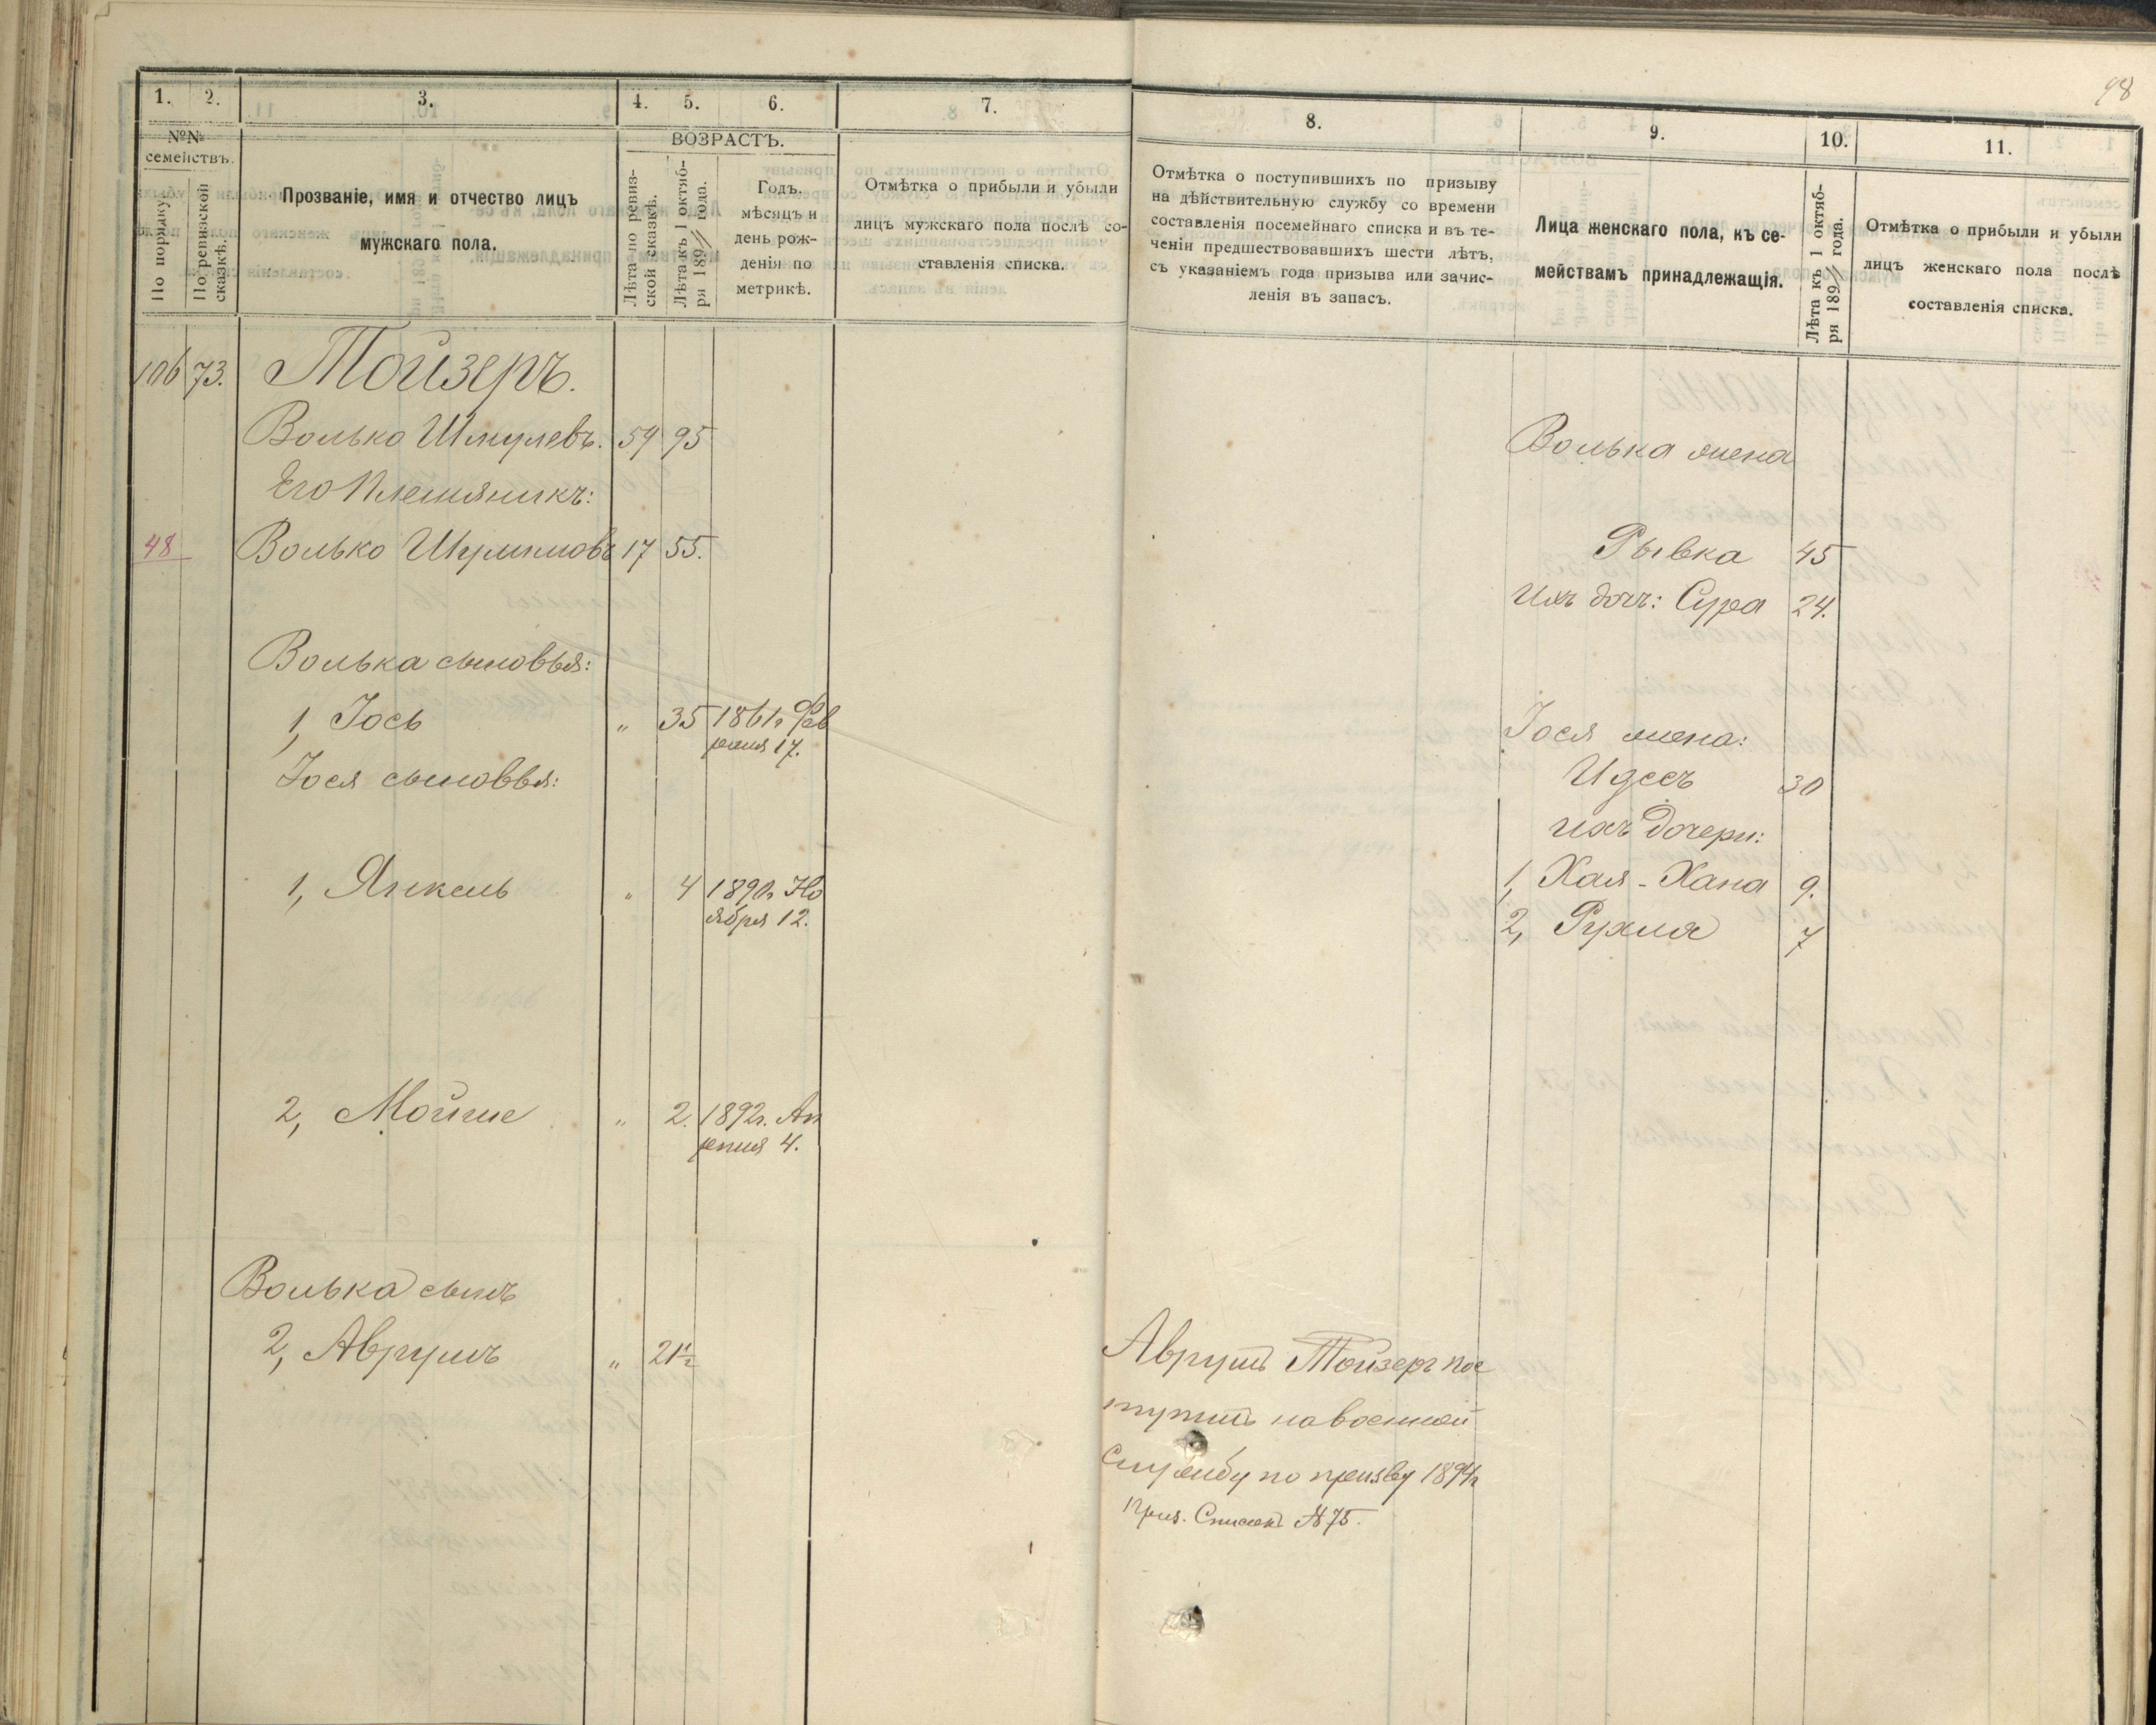 98
1. 2. 3. 4. 5. 6. 7.
№№ семействъ.
По порядку.
По ревизской сказкѣ.
Прозваніе, имя и отчество лицъ
мужскаго пола.
ВОЗРАСТЪ.
Лѣта по ревиз-
ской сказкѣ.
Лѣта къ 1 октяб-
ря 189 года.
Годъ,
мѣсяцъ и
день рож-
денія по
метрикѣ.
Отмѣтка о прибыли и убыли
лицъ мужскаго пола послѣ со-
ставленія списка.
106 73. Тойзеръ.
Волько Шмулевъ. 59 95
Его племяникъ:
48 Волько Шулимовъ 17 55.
Волька сыновья:
1, Іось " 35 1861г. Фев
раля 17.
Іося сыновья:
1, Янкель " 4 1890г. Но
ября 12.
2, Мойше " 2. 1892г. Ап
реля 4.
Волька сынъ
2, Аврумъ " 21½
8. 9. 10. 11.
Отмѣтка о поступившихъ по призыву
на дѣйствительную службу со времени
составленія посемейнаго списка и въ те-
ченіи предшествовавшихъ шести лѣтъ,
съ указаніемъ года призыва или зачис-
ленія въ запасъ.
Лица женскаго пола, къ се-
мействамъ принадлежащія.
Лѣта къ 1 октяб-
ря 189 года.
Отмѣтка о прибыли и убыли
лицъ женскаго пола послѣ
составленія списка.
Волька жена
Рывка 45
Ихъ дочь: Сура 24.
Іося жена:
Идесъ 30
ихъ дочери:
1, Хая-Хана 9.
2, Рухля 7
Аврумъ Тойзеръ пос
тупилъ на военной
службу по призву 1894г
Приз. Списокъ №75.